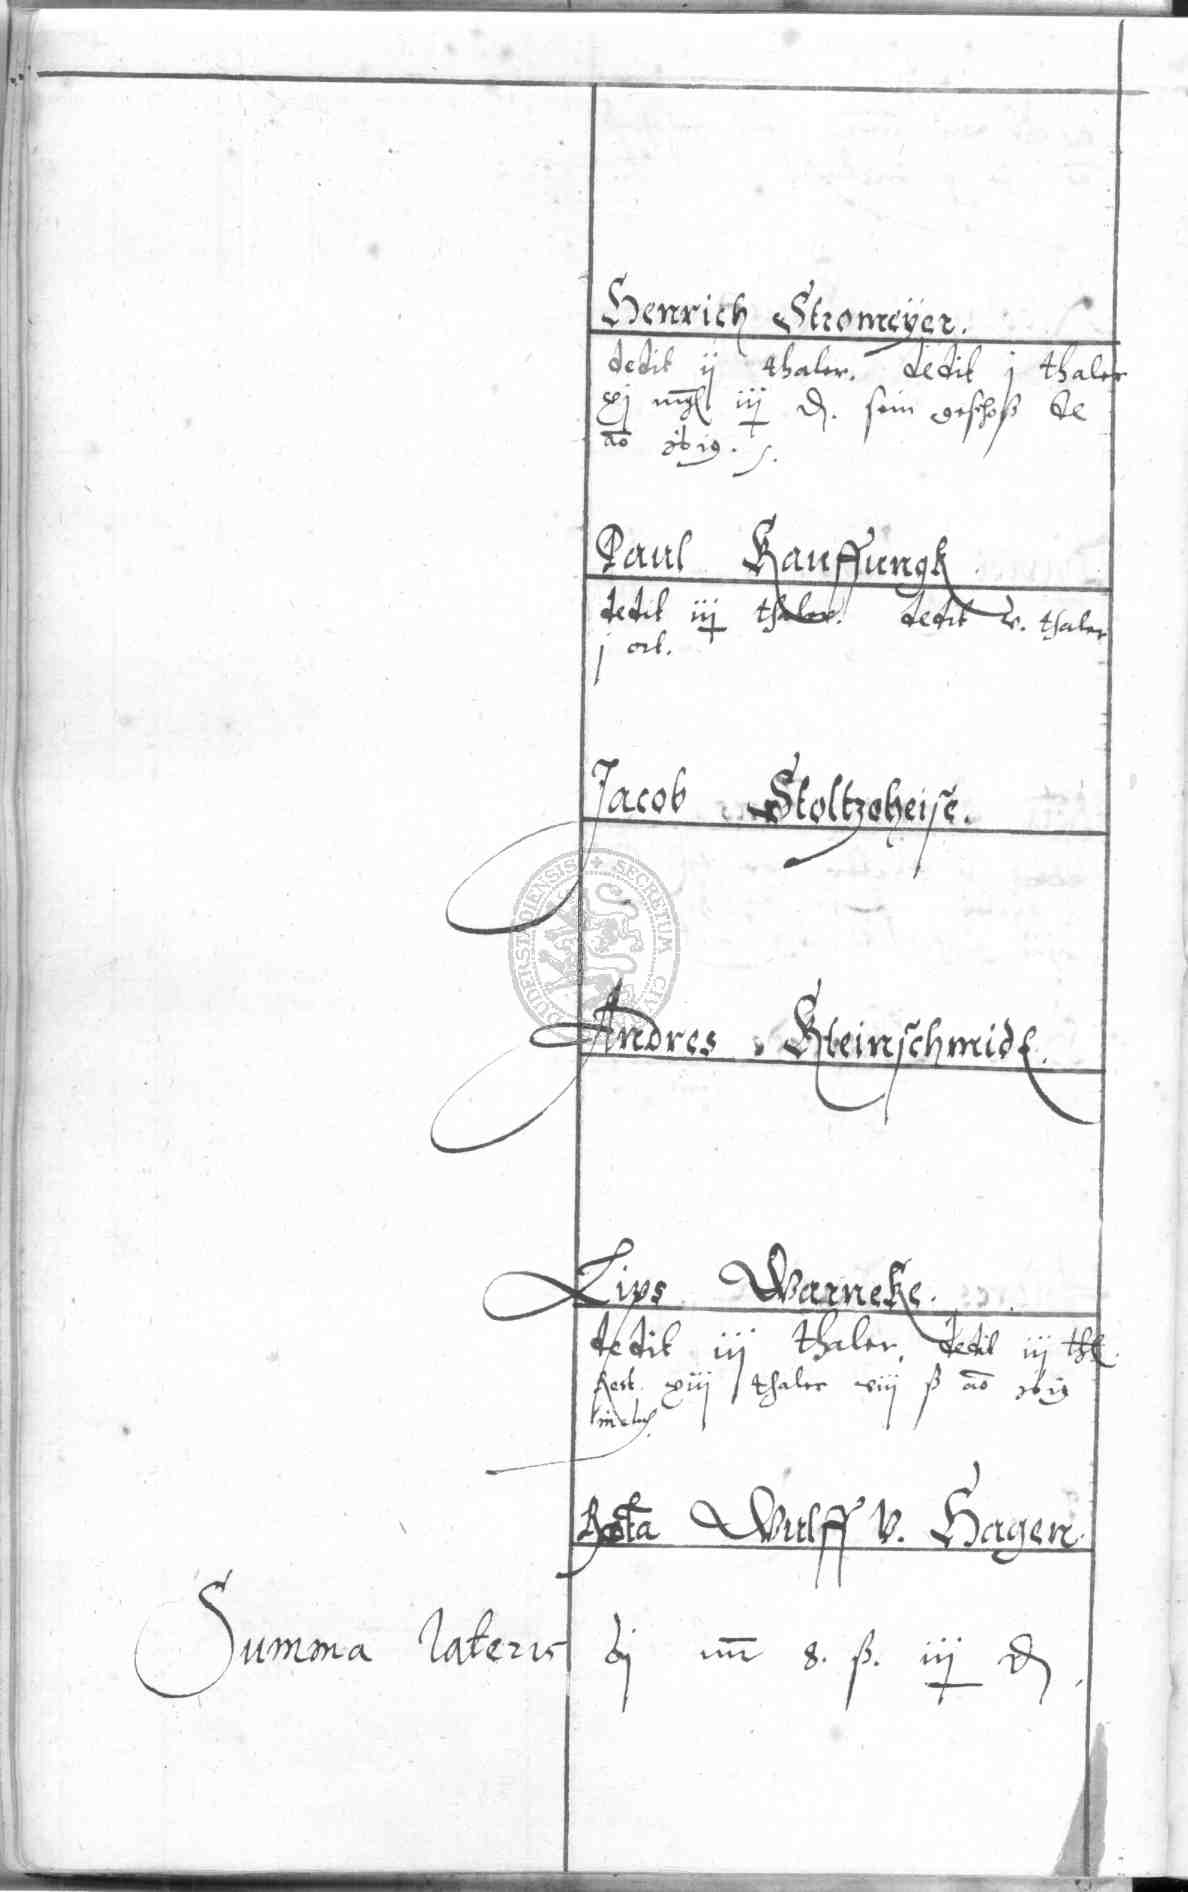 Henrich Stromeÿer.
dedit ij thaler. dedit j thaler
xj mgl iiij d. sein geschoß de
ao 1619.
Paul Kauffungk
dedit iiij thaler. dedit v. thaler
j ort.
Jacob Stoltzeheise.
Andres Kleinschmidt.
Lips Warneke.
dedit iij thaler, dedit iij thl.
Rest. xiij thaler viij ß ao 1619
Wulff V. Hagen.
Summa lateris vj m 8. ß. iiij d
DUDERSTADIENSIS + SECRETUM